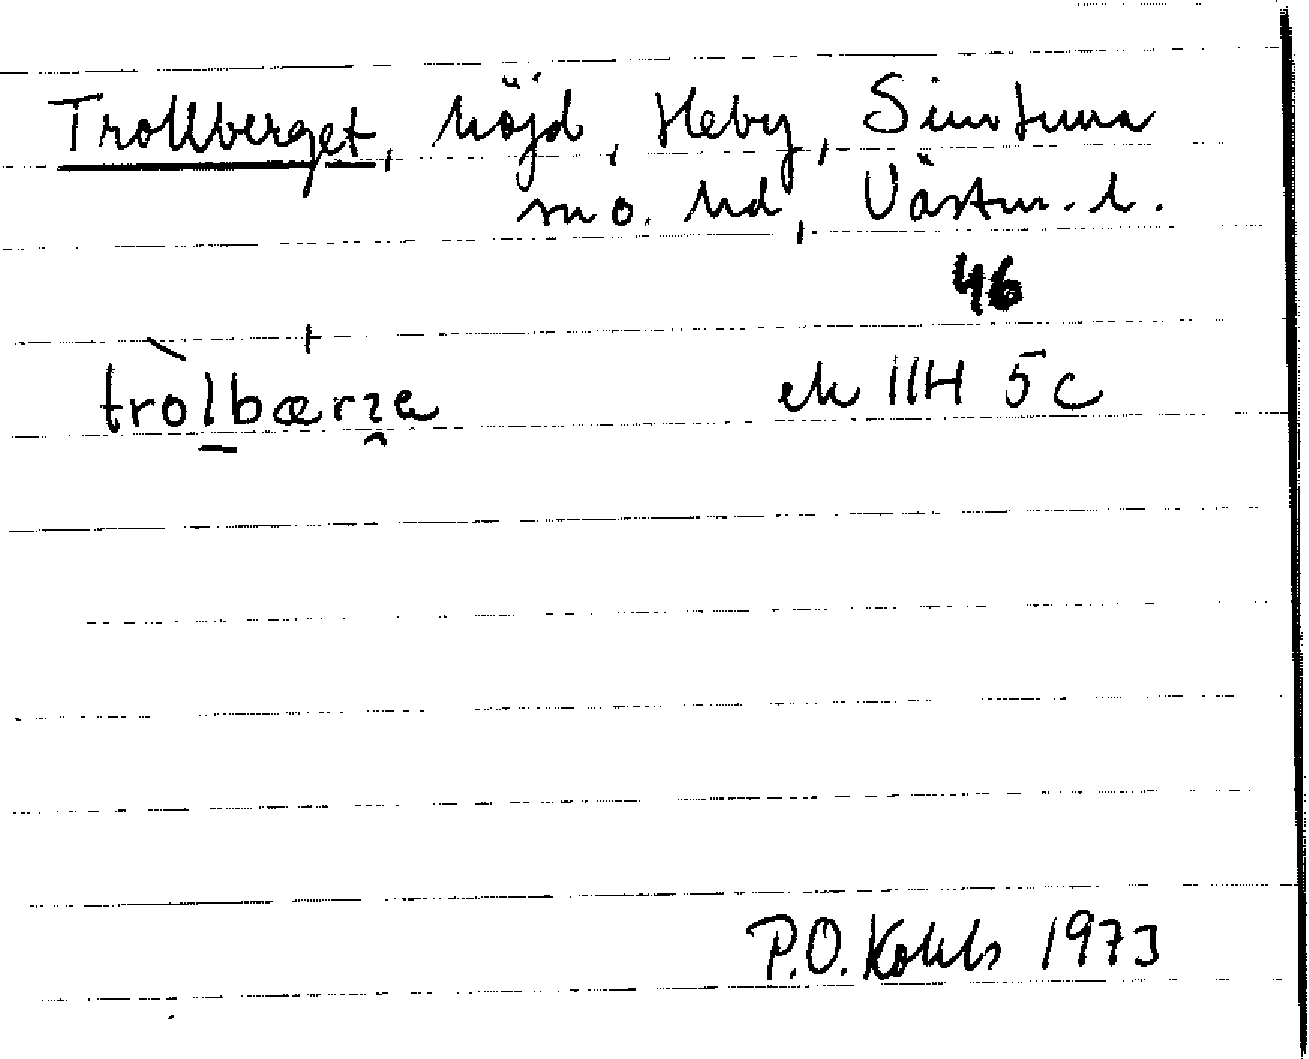 Trollberget, höjd, Heby, Simtuna
sn o. hd, Västm. l.
46
tròlbærɿa ek 11H 5c
P.O. Kolsb 1973